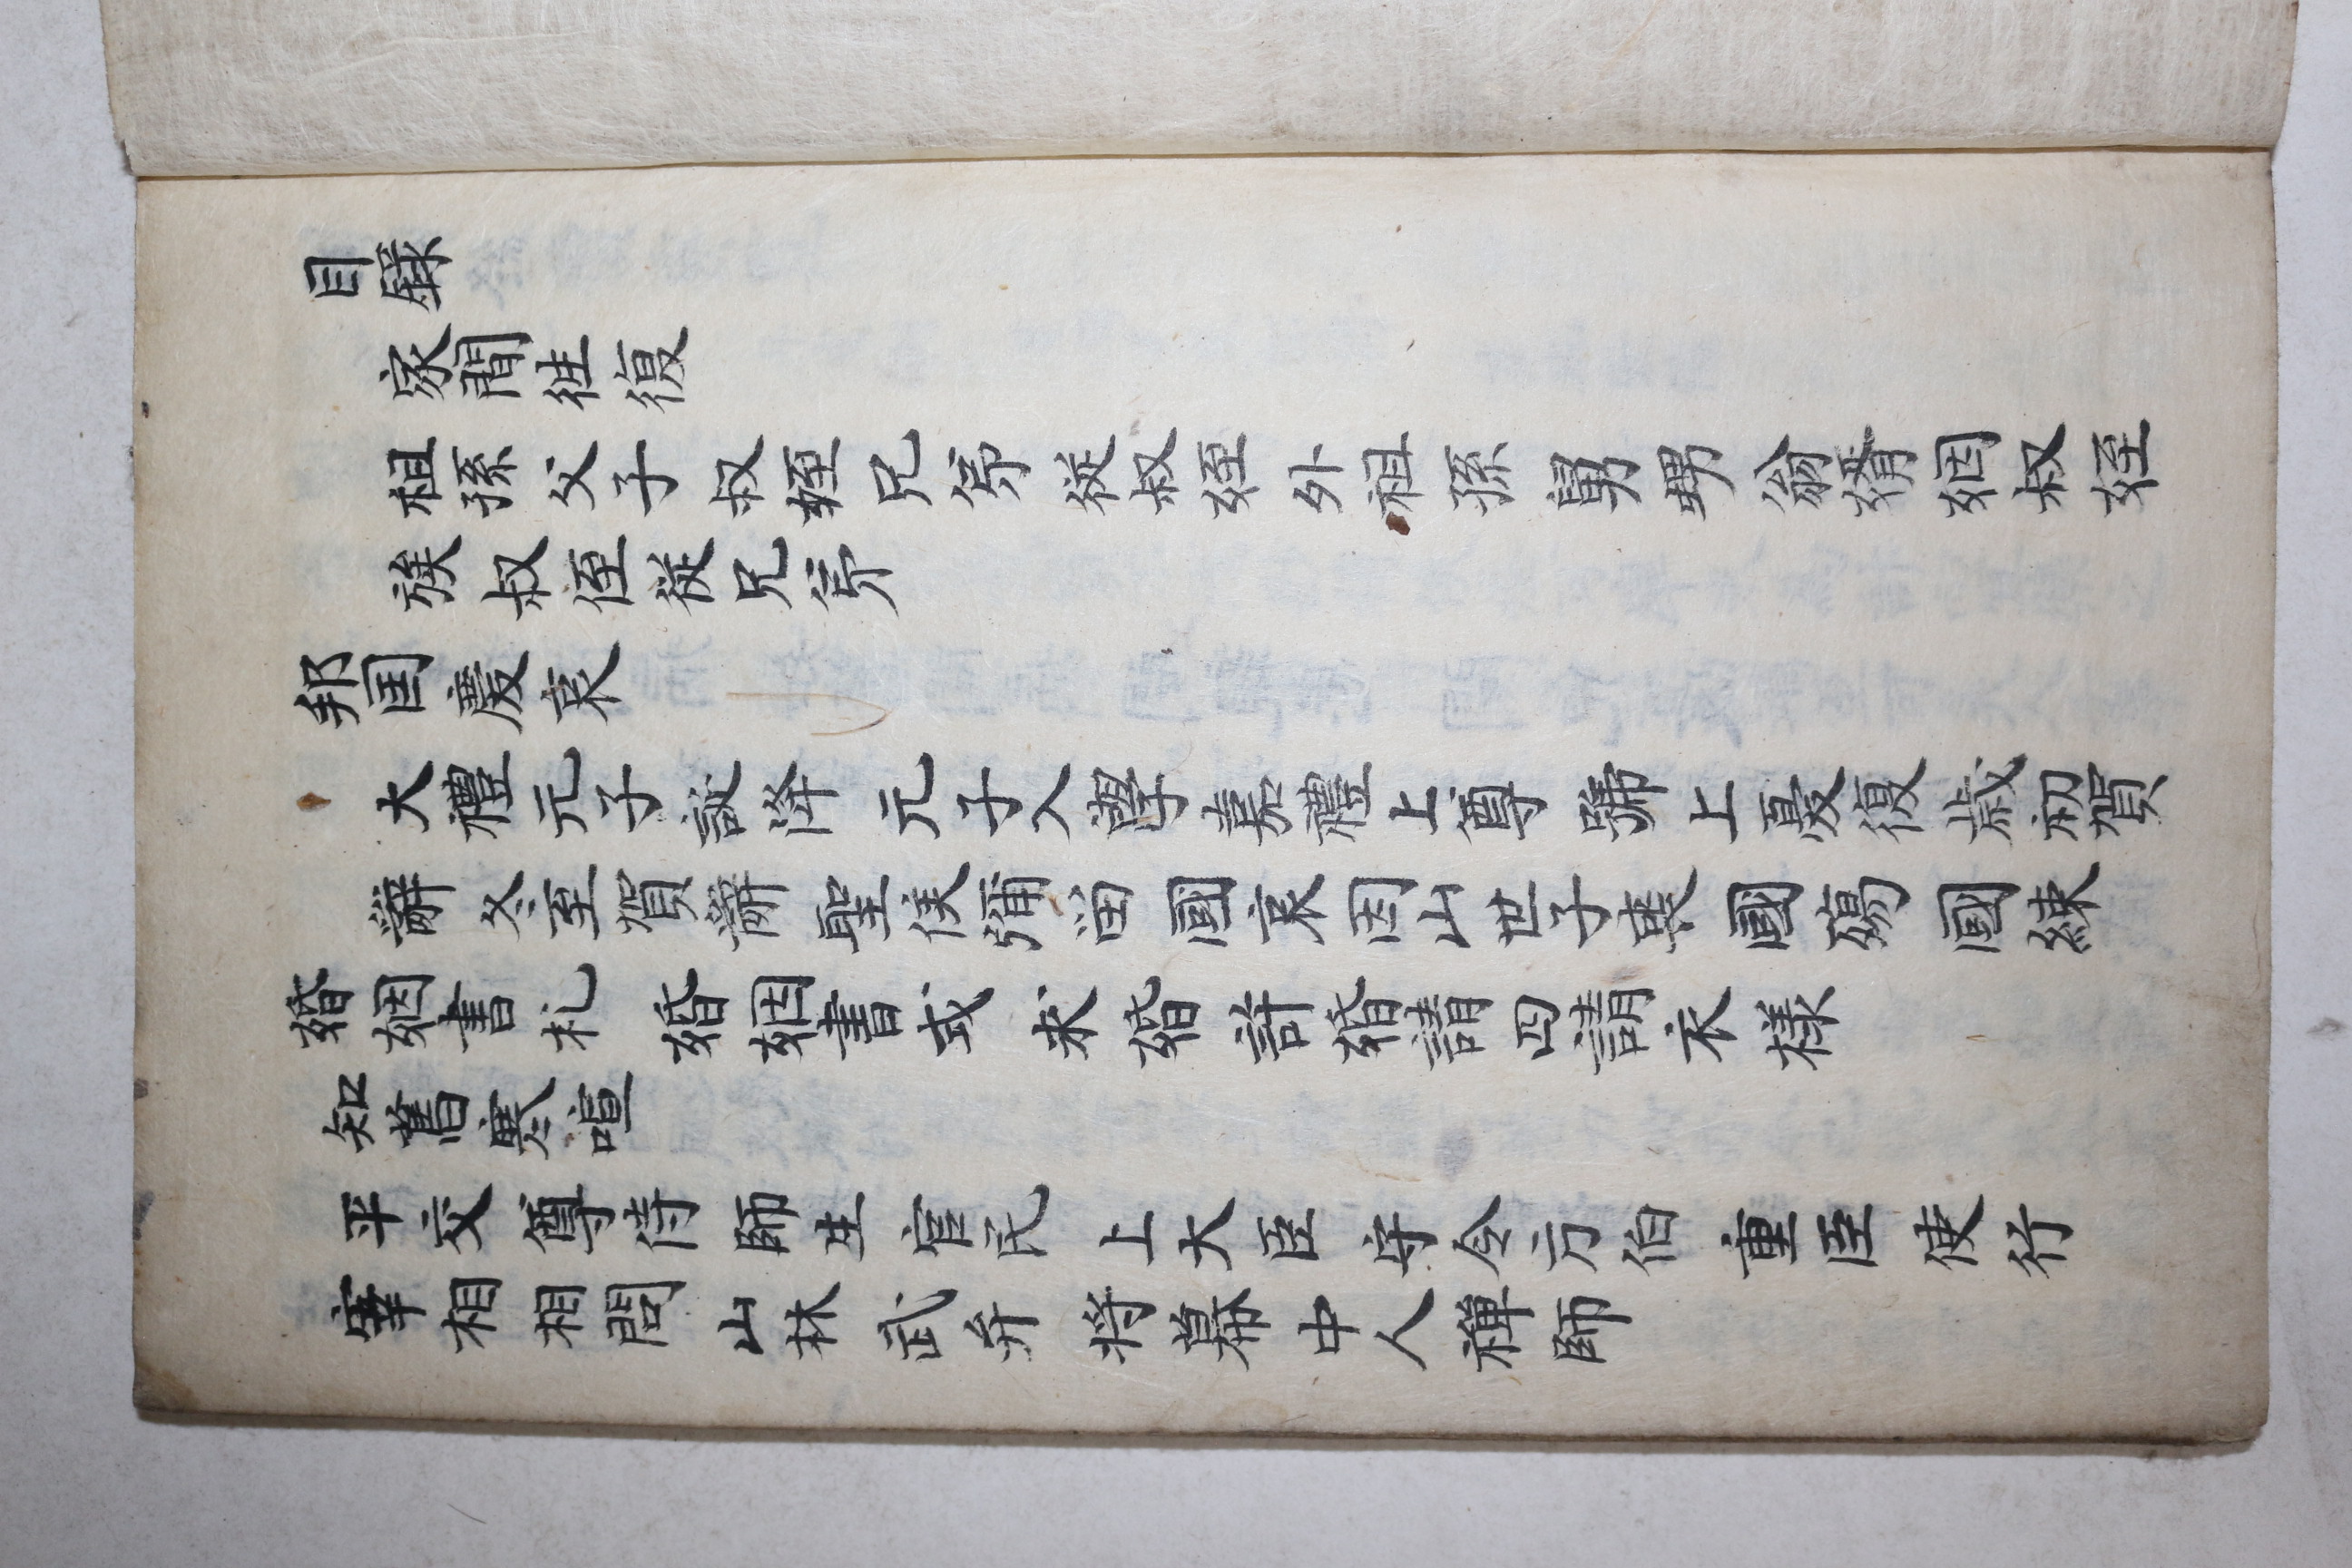 目錄
家間徃復
祖孫 父子 叔姪 兄弟 從叔姪 外祖孫 舅甥 翁婿 姻叔姪
族叔侄 從兄弟
邦国慶哀
大禮 元子誕降 元子入學 嘉禮 上尊號 上憂復 歲初賀
辭 冬至賀辭 聖候彌留 國哀 因山 世子喪 國殤 國練
婚姻書札 婚姻書式 求婚 許婚 請四 請衣樣
知舊寒喧
平交 尊侍 師生 官民 上大臣 守令 方伯 重臣 使行
宰相相問 山林 武弁 將幕 中人 禪師